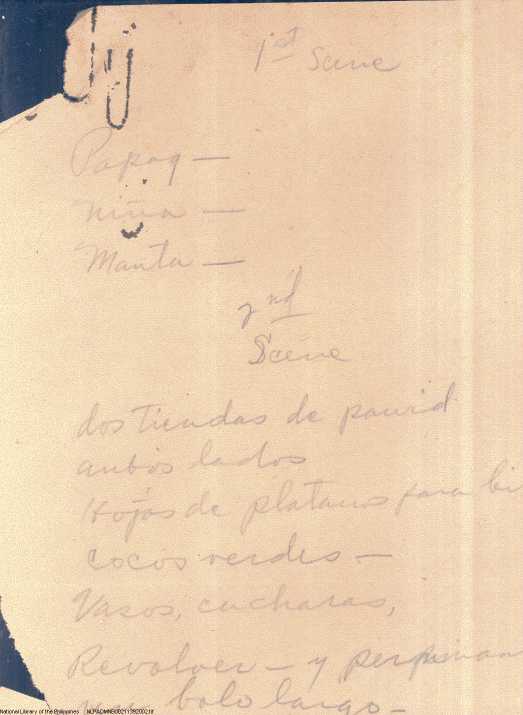 1st Scene
Papag —
Niña —
Manta —
2nd
Scene
dos tiendas de
ambos lados
Hojas de platanos para bi
Cocos verdes —
Vasos, cucharas,
Revolver — y
bolo largo —
National Library of the Philippines